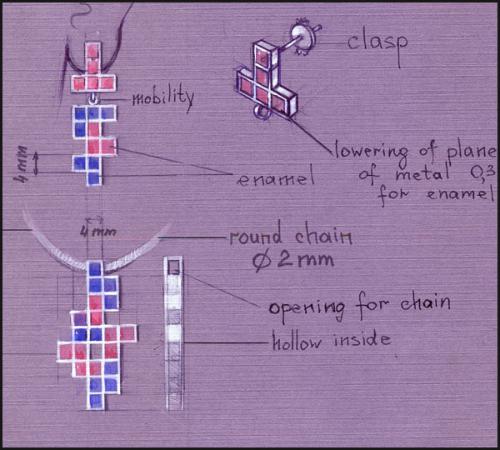 clasp
mobility
lowering of plane
of metal 0,3
for enamel
4 mm
enamel
4 mm
round chain
Ø 2 mm
opening for chain
hollow inside